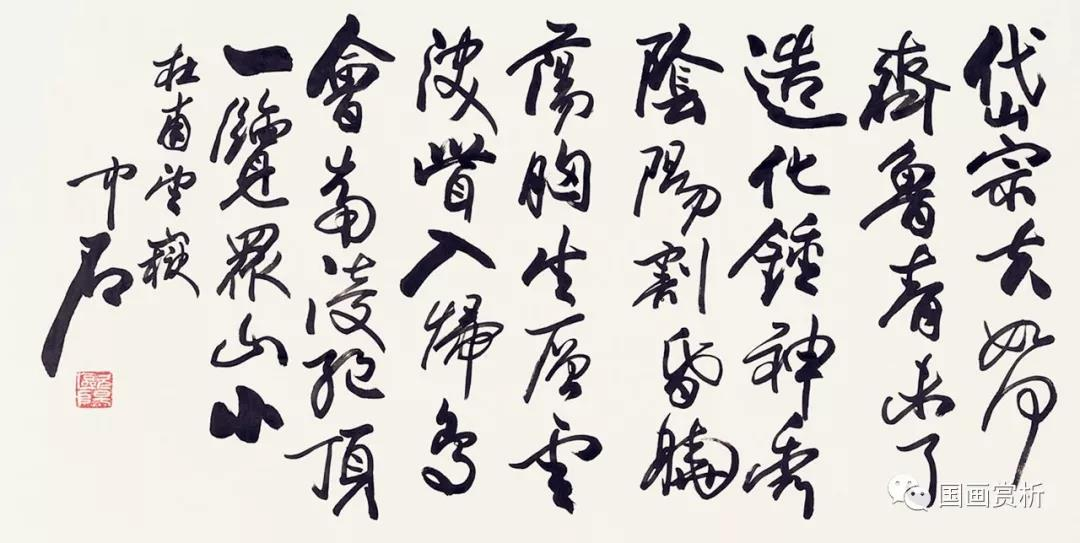 岱宗夫如何
齊魯青未了
造化鍾神秀
陰陽割昏曉
蕩胸生層雲
決眥入歸鳥
會當凌絕頂
一覽眾山小
杜甫望嶽
中石
国画赏析